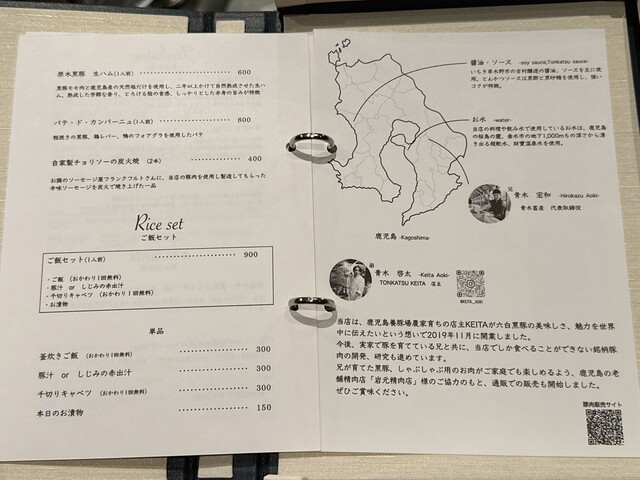 原木黒豚 生ハム(1人前) ………………… 600
黒豚モモ肉と鹿児島産の天然塩だけを使用し、二年以上かけて自然熟成させた生ハ
ム。熟成した芳醇な香り、とろける脂の食感、しっかりとした赤身の旨みが特徴
パテ・ド・カンパーニュ(1人前) ……………… 800
粗挽きの黒豚、鶏レバー、鴨のフォアグラを使用したパテ
自家製チョリソーの炭火焼 (2本) ……………… 400
お隣のソーセージ屋フランクフルトさんに、当店の豚肉を使用し製造してもらった
辛味ソーセージを炭火で焼き上げた一品
Rice set
ご飯セット
ご飯セット(1人前) ………………… 900
・ご飯 (おかわり1回無料)
・豚汁 or しじみの赤出汁
・千切りキャベツ (おかわり1回無料)
・お漬物
単品
釜炊きご飯 (おかわり1回無料) ……………… 300
豚汁 or しじみの赤出汁 ……………… 300
千切りキャベツ (おかわり1回無料) ……………… 300
本日のお漬物 ……………… 150
醤油・ソース -soy sauce,Tonkatsu sauce-
いちき串木野市の吉村醸造の醤油、ソースを主に使
用。とんかつソースは黒酢と黒砂糖を使用し、強い
コクが特徴。
お水 -water-
当店の料理や飲み水で使用しているお水は、鹿児島
の桜島の麓、垂水市の地下1,000mもの深さから湧
き出る超軟水、財寶温泉水を使用。
兄
青木 宏和 -Hirokazu Aoki-
青木畜産 代表取締役
鹿児島 -Kagoshima-
弟
青木 啓太 -Keita Aoki-
TONKATSU KEITA 店主
@KEITA_AOKI
当店は、鹿児島養豚場農家育ちの店主KEITAが六白黒豚の美味しさ、魅力を世界
中に伝えたいという想いで2019年11月に開業しました。
今後、実家で豚を育てている兄と共に、当店でしか食べることができない銘柄豚
肉の開発、研究も進めています。
兄が育てた黒豚、しゃぶしゃぶ用のお肉がご家庭でも楽しめるよう、鹿児島の老
舗精肉店「岩元精肉店」様のご協力のもと、通販での販売も開始しました。
ぜひご賞味ください。
豚肉販売サイト